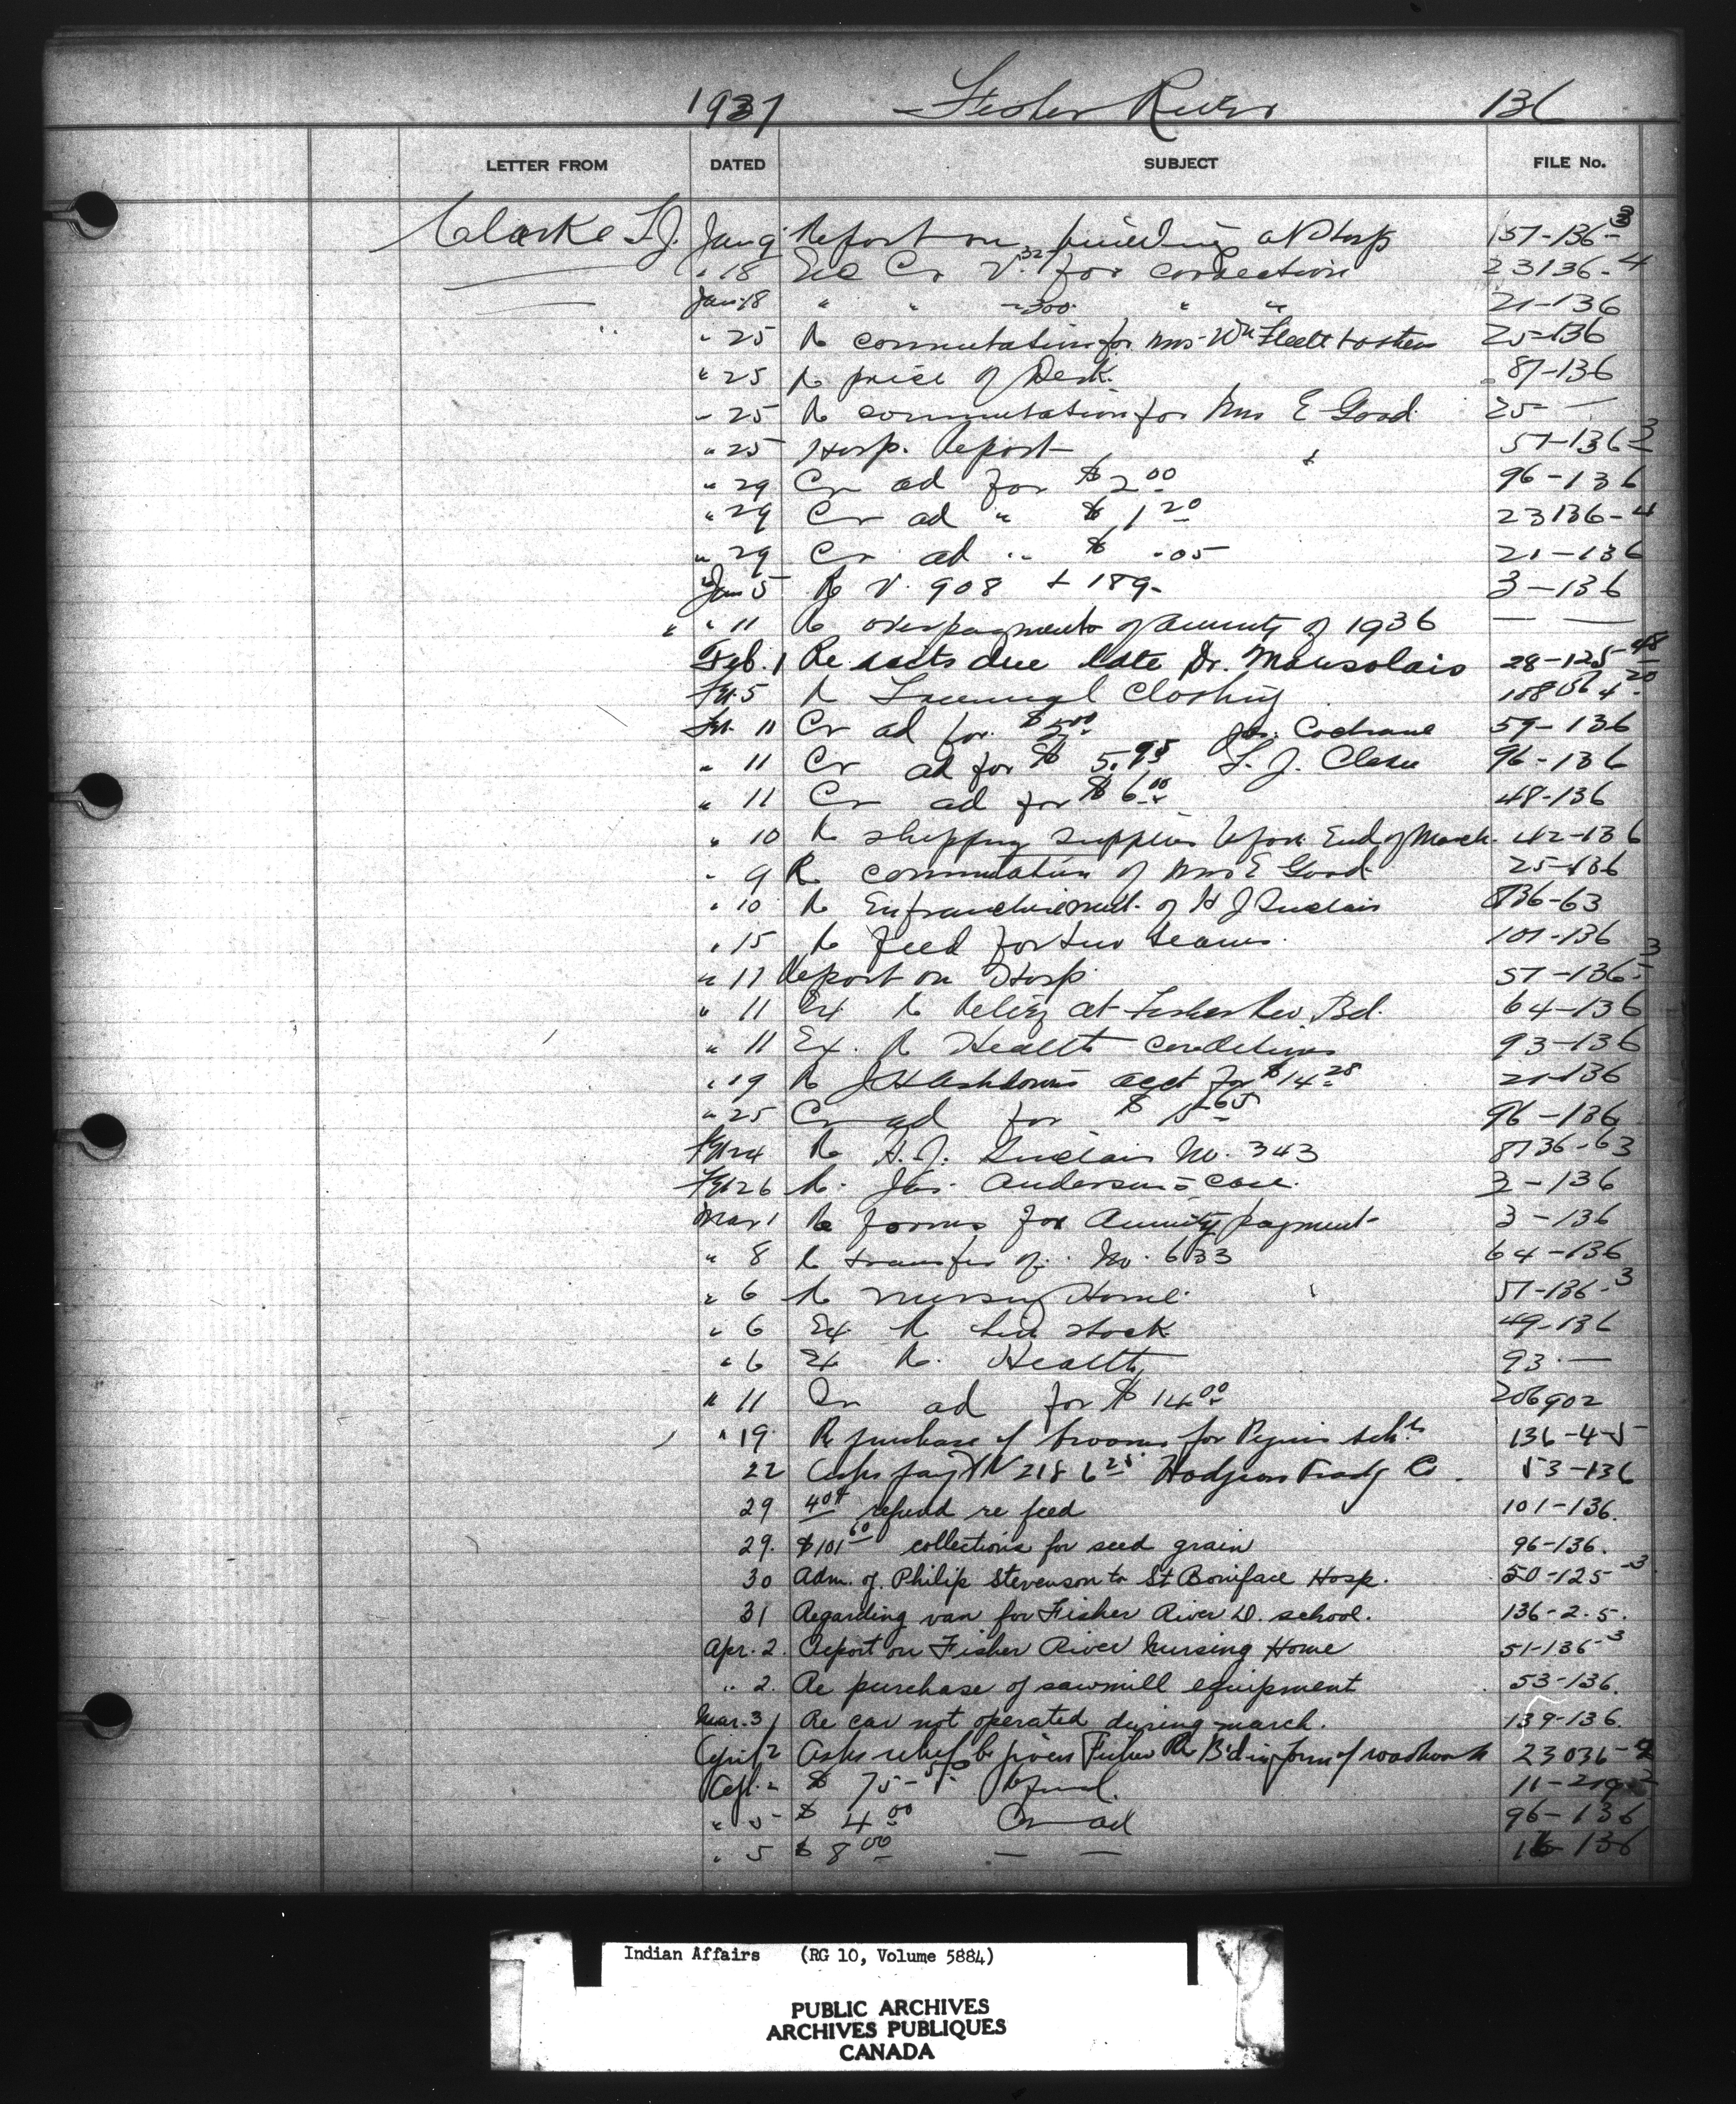 1937 Fisher River 136
LETTER FROM DATED SUBJECT FILE No.
Clarke T.J. Jan 9 Report on building at Hosp 157-136-3
" 18 Cr V. 327 for correction 23136-4
Jan 18 " " 300 " " 21-136
" 25 Re commutation for Mrs Wm 25-136
" 25 Re price of Desk. 87-136
" 25 Re commutation for Mrs E Good 25- —
" 25 Hosp. Report 51-136-3
" 29 Cr ad for $2.00 96-136
" 29 Cr ad " $1.20 23136-4
" 29 Cr ad " $ .05 21-136
Jan 5 Re V. 908 + 189- 3-136
" " 11 Re overpayments of Annuity of 1936 — —
Feb. 1 Re accts due late Dr. Mousolais 28-125-48
Feb. 5 Re Clothing
Feb. 11 Cr ad for $5.00 Jas. Cochrane 59-136
" 11 Cr ad for $5.95 T. J. Clarke 96-136
" 11 Cr ad for $6.00 48-136
" 10 Re shipping supplies before End of March. 42-136
" 9 Re commutation of Mrs E Good 25-136
" 10 Re Enfranchisement. of H J Sinclair 8136-63
" 15 Re feed for two teams. 101-136
" 11 Report on Hosp. 51-136-3
" 11 Ex Re Relief at Fisher Riv. Bd. 64-136
" 11 Ex. Re Health conditions 93-136
" 19 Re J H Ashdown's acct for $14.28 21-136
" 25 Cr ad for $ 96-136
Feb 24 Re H.J. Sinclair No. 343 8136-63
Feb 26 Re. Jas. Anderson's case. 3-136
Mar 1 Re forms for Annuity payment 3-136
" 8 Re transfer of. No. 633 64-136
" 6 Re Nursing Home. 51-136-3
" 6 Ex Re live stock 49-136
" 6 Ex Re. Health 93. —
" 11 Cr ad for $14.00 206902
" 19 Re purchase of brooms for Peguis sch. 136-4-5
22 Asks pay't V 218 6.25 Hodgson Trad'g Co. 53-136
29 refund re feed 101-136.
29. $101.60 collections for seed grain 96-136.
30 Adm. of Philip Stevenson to St Boniface Hosp. 50-125-3
31 Regarding van for Fisher River D. school. 136-2-5.
Apr. 2. Report on Fisher River Nursing Home 51-136-3
" 2. Re purchase of sawmill equipment 53-136.
Mar. 31 Re car not operated during march. 139-136.
April 2 Asks relief be given Fisher R B'd in form of roadwork 23036-2
Apl. 2 $ 75 refund. 11-219-2
" 5 $4.00 Cr ad 96-136
" 5 $8.00 — — 16-136
Indian Affairs (RG 10, Volume 5884)
PUBLIC ARCHIVES
ARCHIVES PUBLIQUES
CANADA